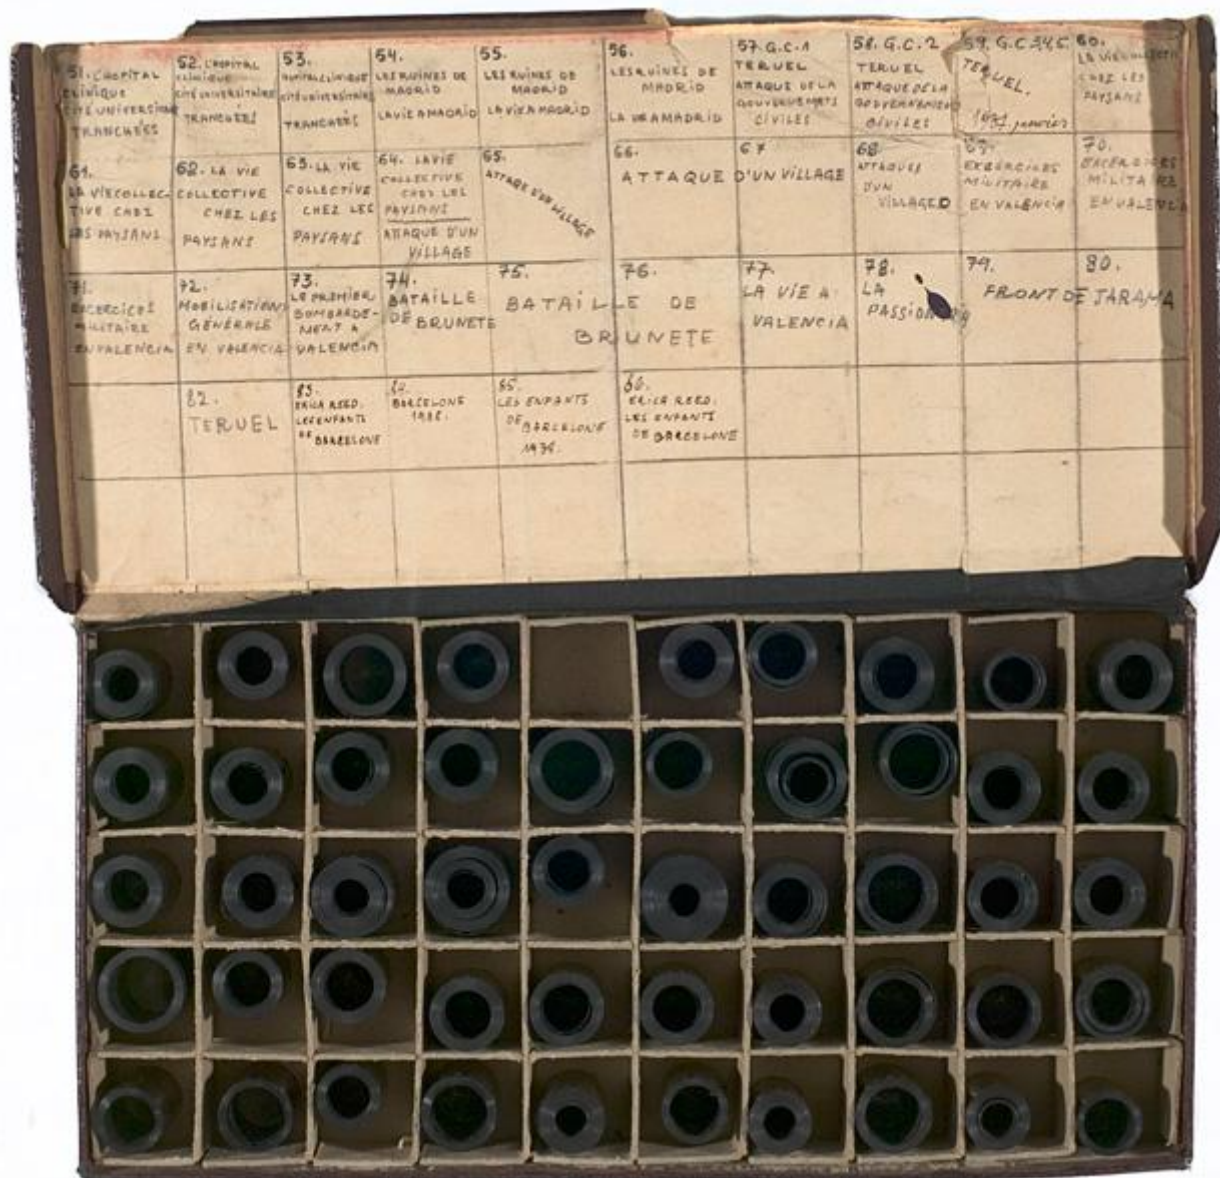 51. L'HOPITAL
CLINIQUE
CITÉ UNIVERSITAIRE
TRANCHÉES
52. L'HOPITAL
CLINIQUE
CITÉ UNIVERSITAIRE
TRANCHÉES
53.
HOPITAL CLINIQUE
CITÉ UNIVERSITAIRE
TRANCHÉES
54.
LES RUINES DE
MADRID
LA VIE A MADRID
55.
LES RUINES DE
MADRID
LA VIE A MADRID
56.
LES RUINES DE
MADRID
LA VIE A MADRID
57. G.C.1
TERUEL
ATTAQUE DE LA
GOUVERNEMENTS
CIVILES
58. G.C.2
TERUEL
ATTAQUE DE LA
GOUVERNEMENT
CIVILES
59. G.C 3,4,5
TERUEL.
janvier
60.
LA VIE COLLECTIVE
CHEZ LES
PAYSANS
61.
LA VIE COLLEC-
TIVE CHEZ
LES PAYSANS
62. LA VIE
COLLECTIVE
CHEZ LES
PAYSANS
63. LA VIE
COLLECTIVE
CHEZ LES
PAYSANS
64. LA VIE
COLLECTIVE
CHEZ LES
PAYSANS
ATTAQUE D'UN
VILLAGE
65.
ATTAQUE D'UN VILLAGE
66. 67
ATTAQUE D'UN VILLAGE
68
ATTAQUES
D'UN
VILLAGE
69.
EXERCICES
MILITAIRE
EN VALENCIA
70.
EXCERCICES
MILITAIRE
EN VALENCIA
71.
EXCERCICES
MILITAIRE
EN VALENCIA
72.
MOBILISATION
GÉNÉRALE
EN VALENCIA
73.
LE PREMIER
BOMBARDE-
MENT A
VALENCIA
74.
BATAILLE
DE BRUNETE
75. 76.
BATAILLE DE
BRUNETE
77.
LA VIE A
VALENCIA
78.
LA
PASSIONARIA
79. 80.
FRONT DE JARAMA
82.
TERUEL
83.
ERICA REED.
LES ENFANTS
DE BARCELONE
84.
BARCELONE
85.
LES ENFANTS
DE BARCELONE
86.
ERICA REED.
LES ENFANTS
DE BARCELONE